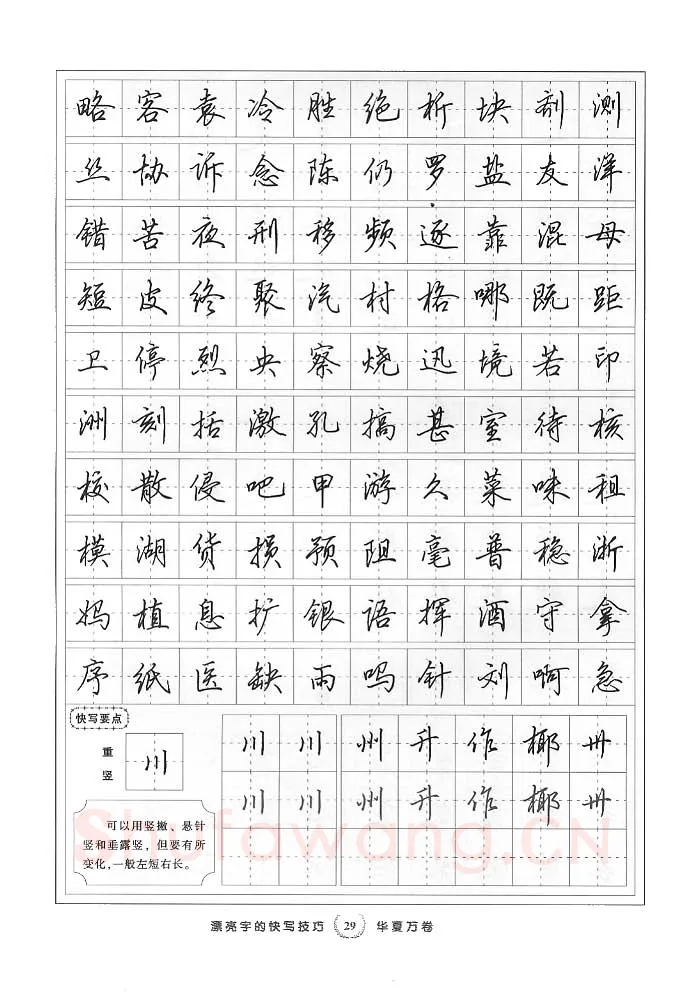 略客袁冷胜绝析块剖测
丝协诉念陈仍罗盐友洋
错苦夜刑移频逐靠混母
短皮终聚汽村格哪既距
卫停烈央察烧迅境若印
洲刻括激孔搞甚室待核
校散侵吧甲游久菜味租
模湖货损预阻毫普稳浙
妈植息扩银语挥酒守拿
序纸医缺雨吗针刘啊急
快写要点
重竖
川
川川州升作椰卅
川川州升作椰卅
可以用竖撇、悬针
竖和垂露竖，但要有所
变化，一般左短右长。
Shufawang.CN
漂亮字的快写技巧 29 华夏万卷